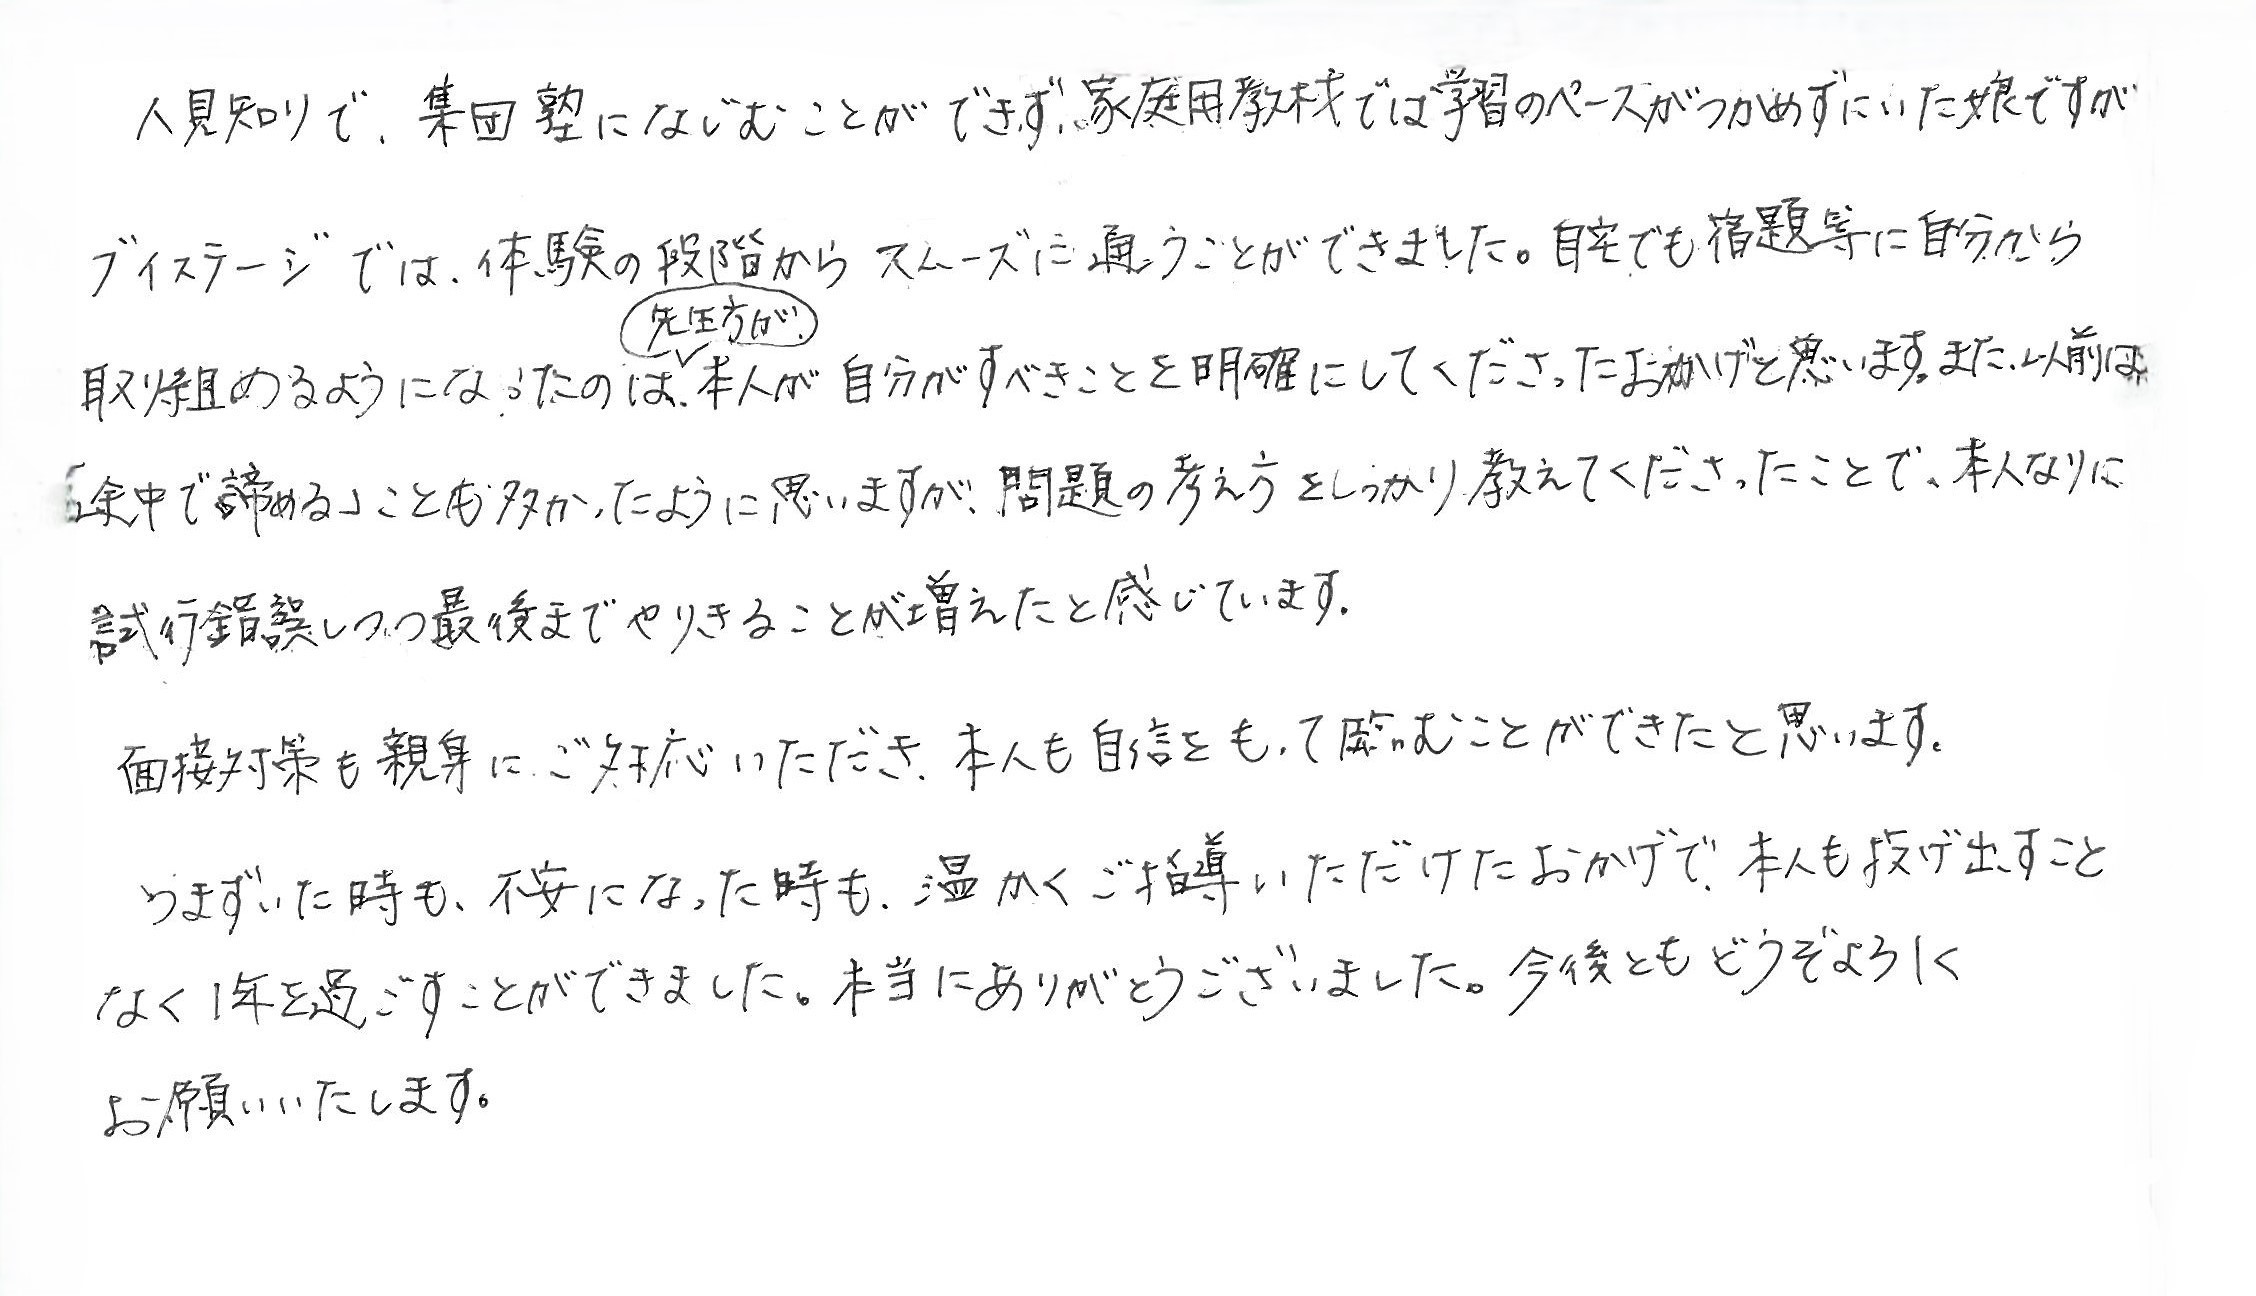 人見知りで、集団塾になじむことができず、家庭用教材では学習のペースがつかめずにいた娘ですが
ブイステージでは、体験の段階からスムーズに通うことができました。自宅でも宿題等に自分から
先生方が、
取り組めるようになったのは、本人が自分がすべきことを明確にしてくださったおかげと思います。また、以前は
「途中で諦める」ことも多かったように思いますが、問題の考え方をしっかり教えてくださったことで、本人なりに
試行錯誤しつつ最後までやりきることが増えたと感じています。
面接対策も親身にご対応いただき、本人も自信をもって臨むことができたと思います。
つまずいた時も、不安になった時も、温かくご指導いただけたおかげで、本人も投げ出すこと
なく1年を過ごすことができました。本当にありがとうございました。今後ともどうぞよろしく
お願いいたします。